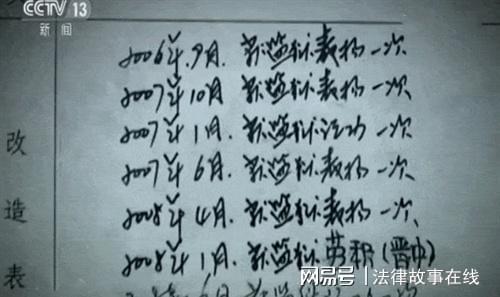 CCTV 13
新闻
2006年9月.获监狱表扬一次
2007年10月.获监狱表扬一次
2007年1月.获监狱记功一次
2007年6月.获监狱表扬一次
2008年4月.获监狱表扬一次、
2008年1月.获监狱劳积(晋中)
改
造
表
网易号 | 法律故事在线